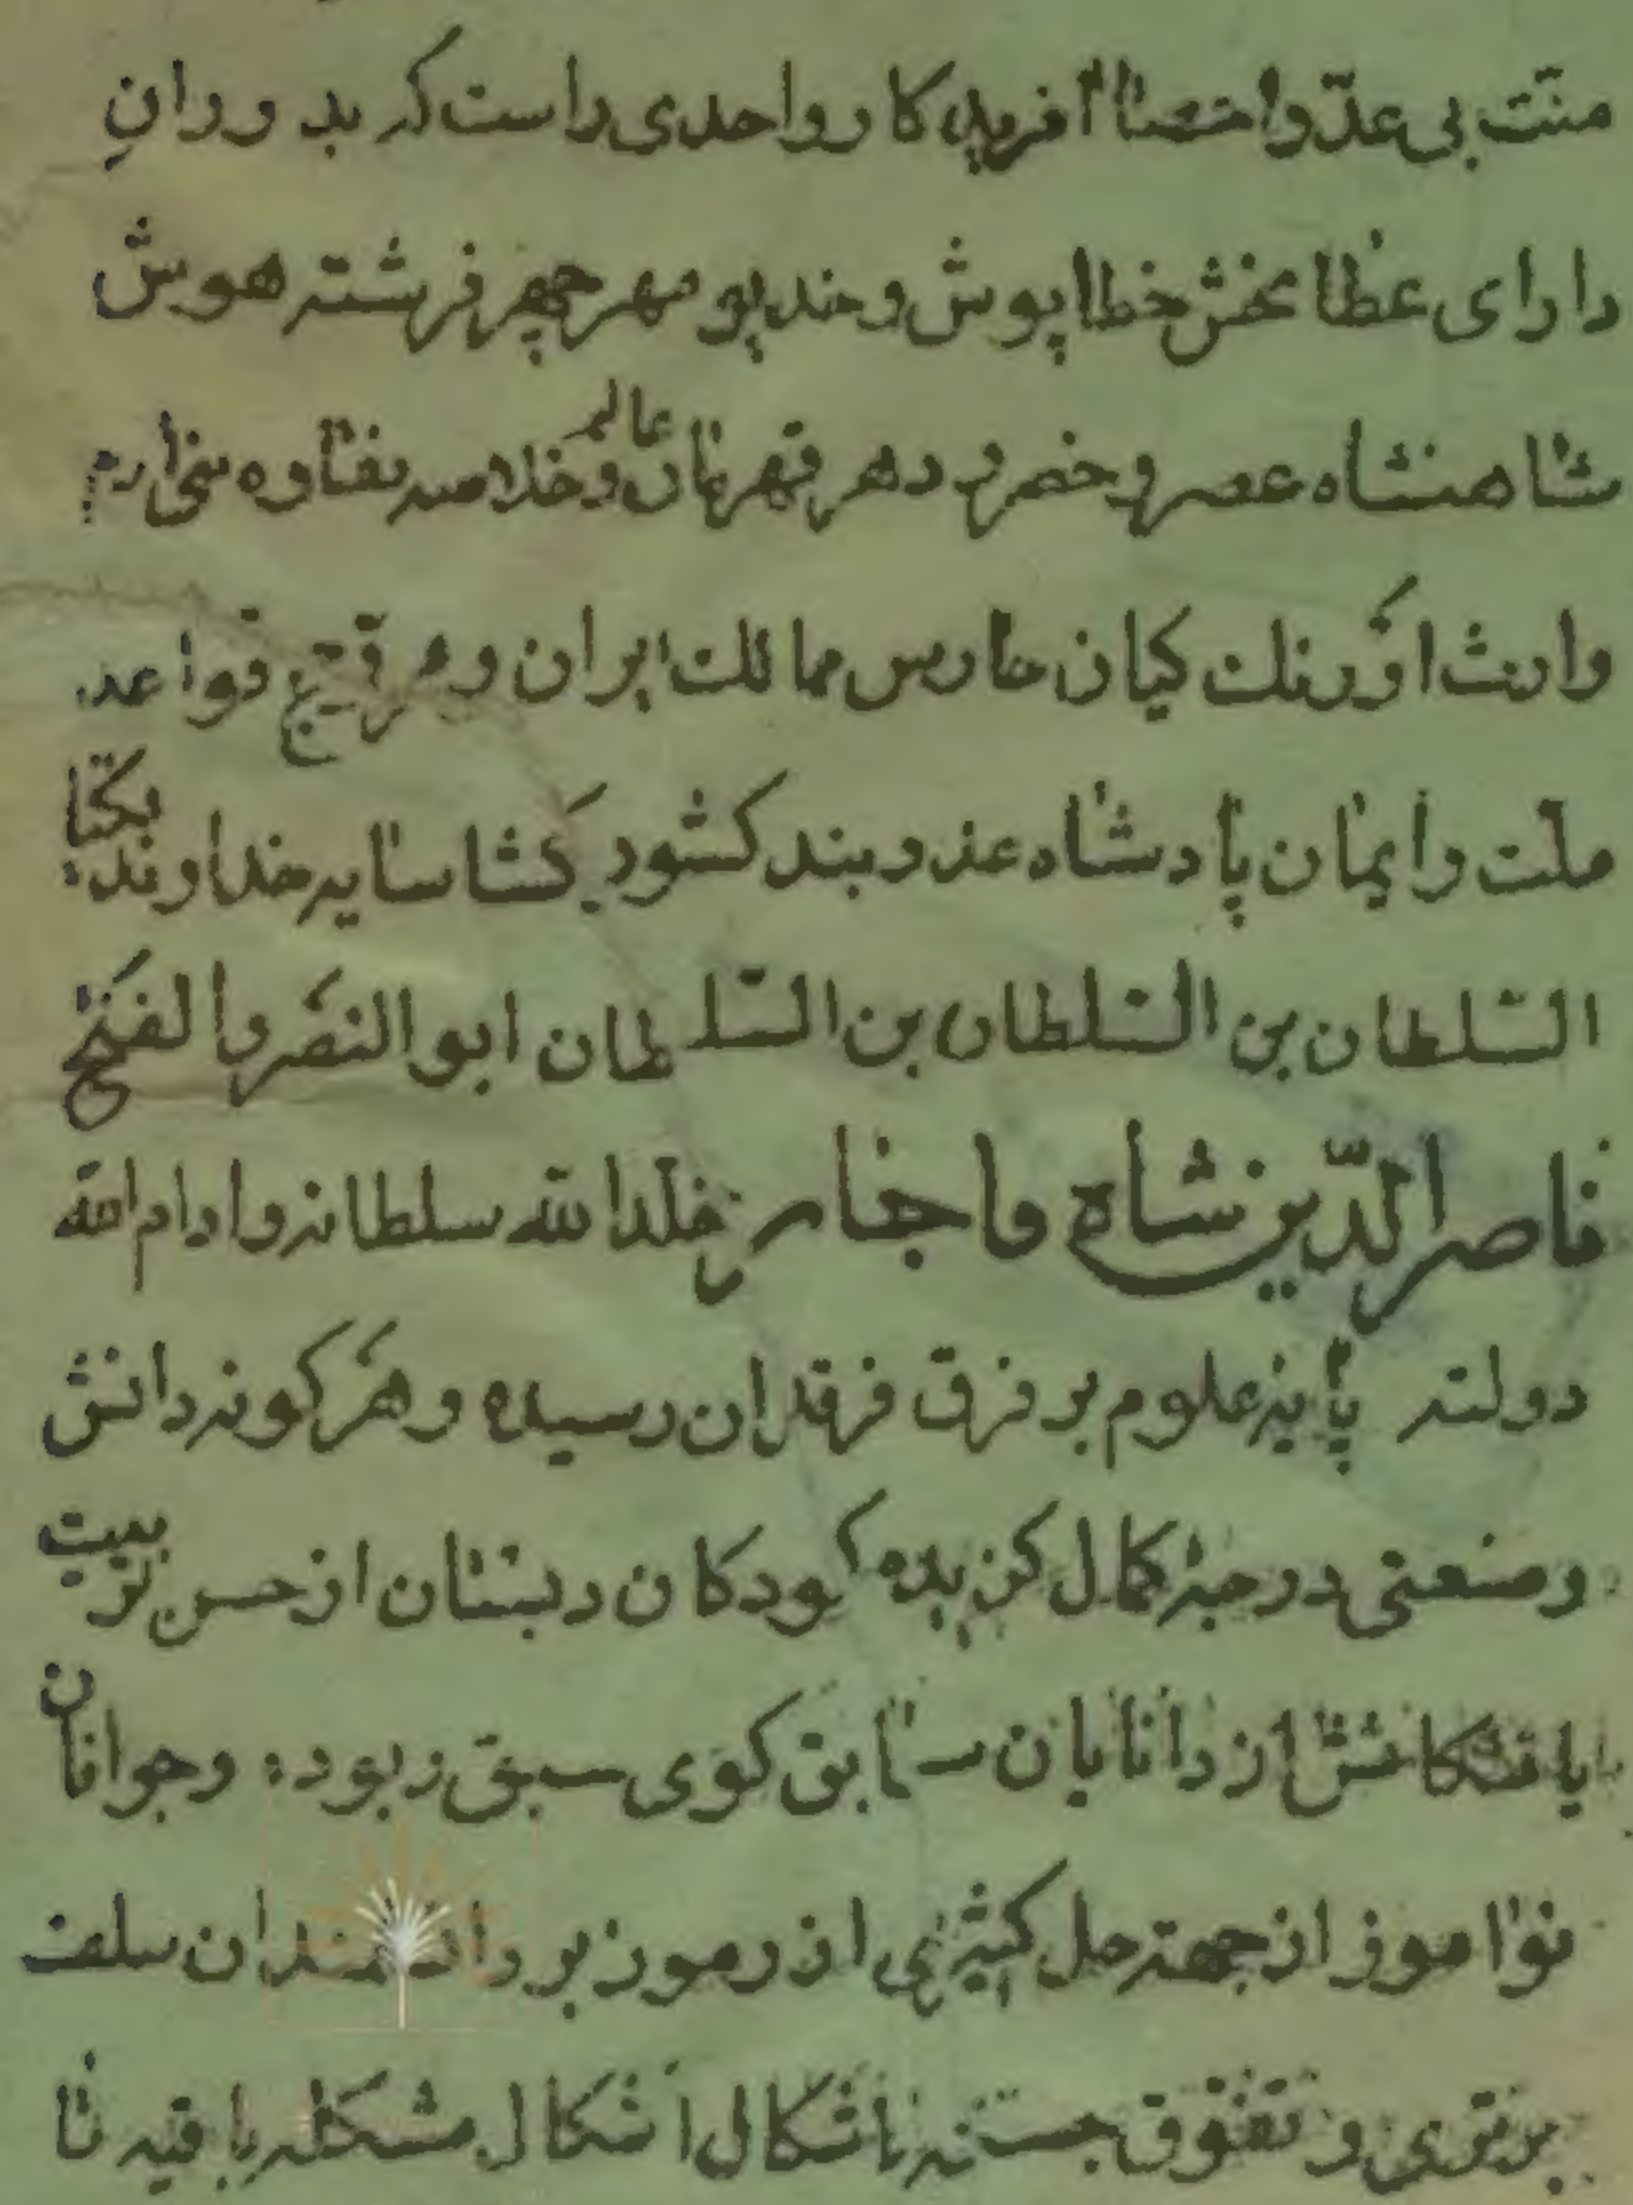 منّت بی عدّ و احصا آفریدکار واحدی راست که بدوران
دارای عطا بخش خطا پوش و خدیو مهر چهر فرشته هوش
شاهنشاه عصر و خضرو دهر قهرمان عالم و خلاصه نقاوه
وارث اورنک کیان حارس ممالک ایران و مروّج قواعد
ملّت و ایمان پادشاه عدو بند کشور کشا سایه خداوند یکتا
السّلطان بن السّلطان بن السّلطان ابوالنصر والفتح
ناصرالدّین شاه قاجار خلّد الله سلطانه و ادام الله
دولته پایه علوم بر فرق فرقدان رسیده و هر کونه دانش
و صنعتی درجه کمال کزیده کودکان دبستان از حسن تربیت
یافتکانش از دانایان سابق کوی سبق ربوده و جوانان
نوآموز از جهة حل کثیری از رموز بر دانشمندان سلف
برتری و تفوّق جسته باشکال اشکال مشکله باقیه تا